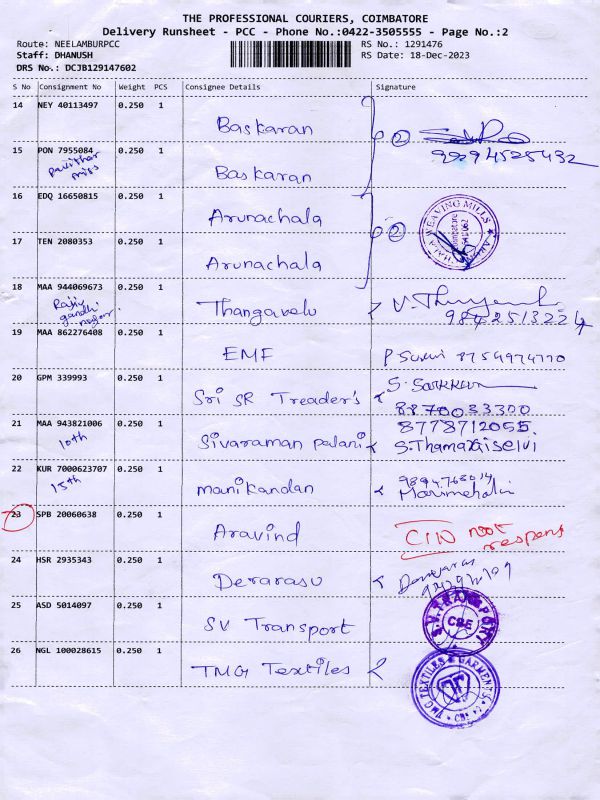 THE PROFESSIONAL COURIERS, COIMBATORE
Delivery Runsheet - PCC - Phone No.:0422-3505555 - Page No.:2
Route: NEELAMBURPCC
RS No.: 1291476
Staff: DHANUSH
RS Date: 18-Dec-2023
DRS No.: DCJB129147602
S No Consignment No Weight PCS Consignee Details Signature
14 NEY 40113497 0.250 1 Baskaran
2
15 PON 7955084 0.250 1 Baskaran
16 EDQ 16650815 0.250 1 Arunachala
WEAVING MILLS
2
17 TEN 2080353 0.250 1 Arunachala
18 MAA 944069673 0.250 1 Thangavelu
Rajiv
gandhi
nagar
9842513224
19 MAA 862276408 0.250 1 EMF
20 GPM 339993 0.250 1 Sri SR Treader's
8870033300
21 MAA 943821006 0.250 1 Sivaraman palani
10th
8778712055
S.Thamaraiselvi
22 KUR 7000623707 0.250 1 manikandan
15th
23 SPB 20060638 0.250 1 Aravind
CIN not
respons
24 HSR 2935343 0.250 1 Derarasu
25 ASD 5014097 0.250 1 SV Transport
S.V.TRANSPORT
CBE
26 NGL 100028615 0.250 1 TMG Textiles
TMG TEXTILES & GARMENTS